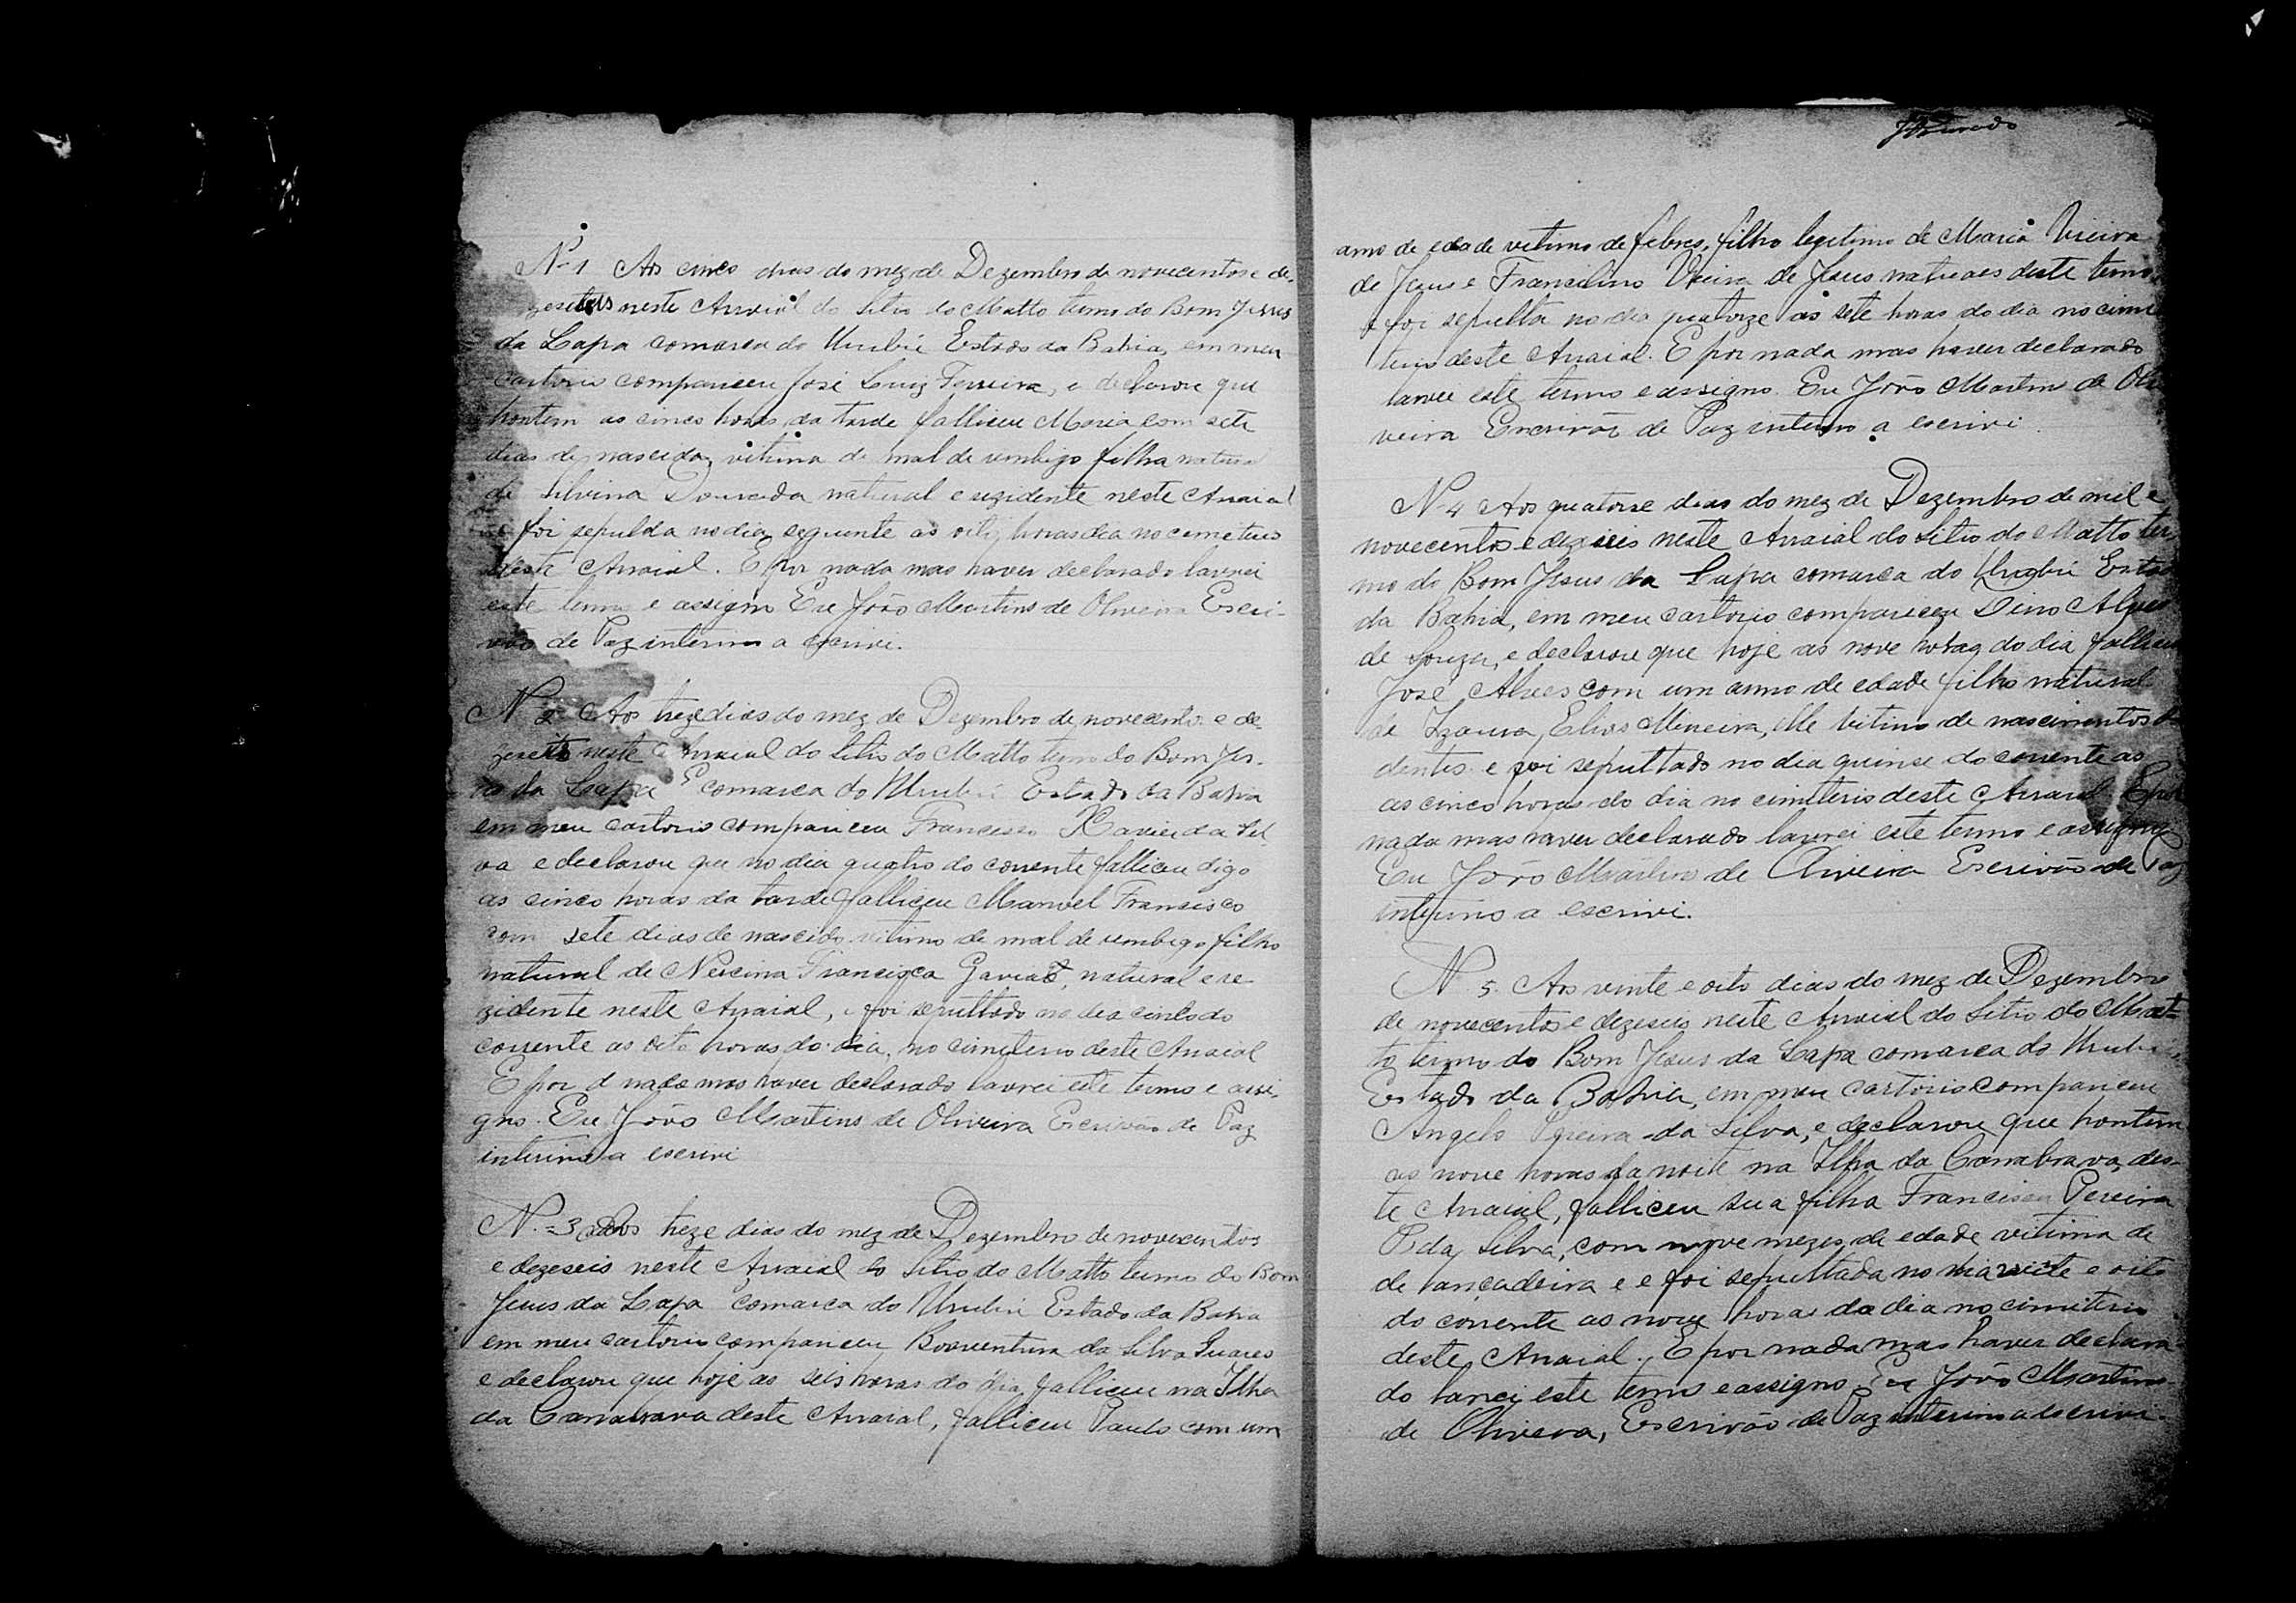 N. 1 Aos cinco dias do mez de Dezembro de novecentos e de-
zeseis neste Arraial do Sitio do Matto termo do Bom Jesus
da Lapa comarca do Urubú Estado da Bahia, em meu
cartorio compariceu José Luiz Ferreira, e declarou que
hontem as cinco horas da tarde falliceu Maria com sete
dias de nascida, vitima de mal de umbigo filha natural
de Silvina Dourada natural e rezidente neste Arraial
e foi sepulda no dia seguinte as oito horas dia no cemeterio
deste Arraial. E por nada mas haver declarado lavrei
este termo e assigno Eu João Martins de Oliveira Escri-
vão de Paz interino a escrivi.
N. 2 Aos treze dias do mez de Dezembro de novecentos e de-
zeseis neste Arraial do Sitio do Matto termo do Bom Je-
sus da Lapa comarca do Urubú Estado da Bahia
em meu cartorio compariceu Francisco Xavier da Sil-
va e declarou que no dia quatro do corrente falliceu digo
as cinco horas da tarde falliceu Manoel Francisco
com sete dias de nascido vitimo de mal de umbigo filho
natural de Francisca natural e re
zidente neste Arraial, e foi sepultado no dia cinco do
corrente as oito horas do dia, no cimeterio deste Arraial
E por d nada mas haver declarado lavrei este termo e assi-
gno. Eu João Martins de Oliveira Escrivão de Paz
interino a escrivi
N. 3 Aos treze dias do mez de Dezembro de novecentos
e dezeseis neste Arraial do Sitio do Matto termo do Bom
Jesus da Lapa comarca do Urubú Estado da Bahia
em meu cartorio compariceu Boaventura da Silva Suares
e declarou que hoje as seis horas do dia falliceu na Ilha
da Canabrava deste Arraial, falliceu Paulo com um
Dourado
anno de edade vitimo de febres, filho legitimo de Maria Vieira
de Jesus e Francilino Vieira de Jesus naturaes deste termo,
e foi sepulta no dia quatorze as sete horas do dia no cime
terio deste Arraial. E por nada mas haver declarado
lavrei este termo e assigno. Eu João Martins de Oli
veira Escrivão de Paz interino a escrivi.
N. 4 Aos quatorse dias do mez de Dezembro de mil e
novecentos e dezeseis neste Arraial do Sitio do Matto ter-
mo do Bom Jesus da Lapa comarca do Urubú Estado
da Bahia, em meu cartorio compariceu Dino Alves
de Souza, e declarou que hoje as nove horas do dia falliceu
José Alves com um anno de edade filho natural
de Izaura Elias Mineira, vitimo de nascimentos de
dentes e foi sepultado no dia quinse do corrente as
as cinco horas do dia no cimiterio deste Arraial E por
nada mas haver declarado lavrei este termo e assigno
Eu João Martins de Oliveira Escrivão de Paz
interino a escrivi.
N. 5. Aos vinte e oito dias do mez de Dezembro
de novecentos e dezeseis neste Arraial do Sitio do Mat-
to termo do Bom Jesus da Lapa comarca do Urubú
Estado da Bahia, em meu cartorio compariceu
Angelo Pereira da Silva, e declarou que hontem
as nove horas da noite na Ilha da Canabrava, des-
te Arraial, falliceu sua filha Francisca Pereira
da Silva, com nove mezes de edade vitima de
de e e foi sepultada no dia vinte e oito
do corrente as nove horas do dia no cimiterio
deste Arraial. E por nada mas haver declara-
do lavrei este termo e assigno Eu João Martins
de Oliveira, Escrivão de Paz interino a escrivi.